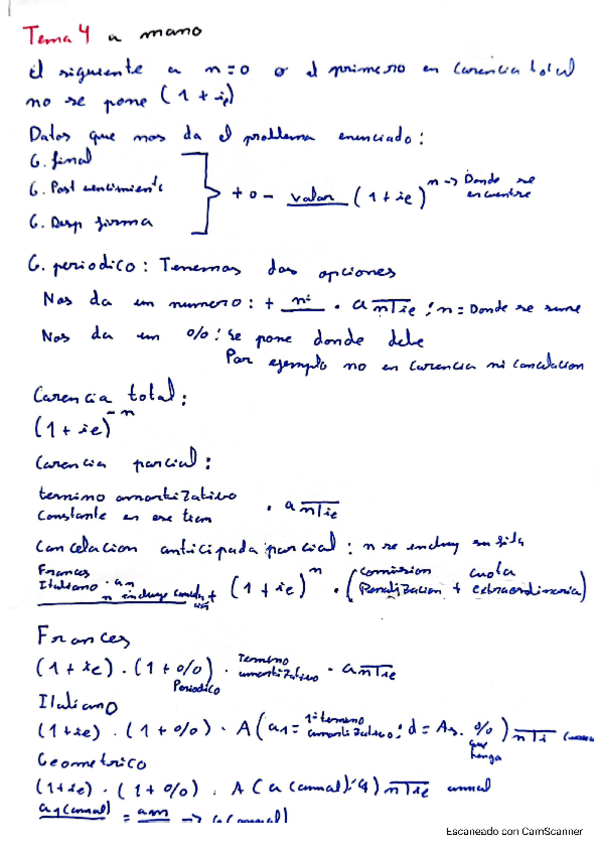 Tema 4 a mano
El siguiente a n=0 o el primero en carencia total
no se pone (1 + ie)
Datos que nos da el problema enunciado:
G. final
G. Post vencimiento
G. Desp firma
+ o - valor (1 + ie)^n -> Donde se encuentre
G. periodico: Tenemos dos opciones
Nos da un numero: + nº · a n¬ie ; n = Donde se sume
Nos da un %: Se pone donde debe
Por ejemplo no en carencia ni cancelacion
Carencia total:
(1 + ie)^-n
Carencia parcial:
termino amortizativo
Constante en ese · a n¬ie
Cancelacion anticipada parcial: n se incluy su fila
Frances
Italiano · an
n incluye + (1 + ie)^n · (comision Penalización + cuota extraordinaria)
Frances
(1 + ie) · (1 + %) Periodico · Termino amortizativo · a n¬ie
Italiano
(1+ie) · (1 + %) · A (a1 = 1º termino amortizativo ; d = As. % que tenga) n¬i
Geometrico
(1+ie) · (1 + %) · A (a (anual); q) n¬ie anual
Escaneado con CamScanner